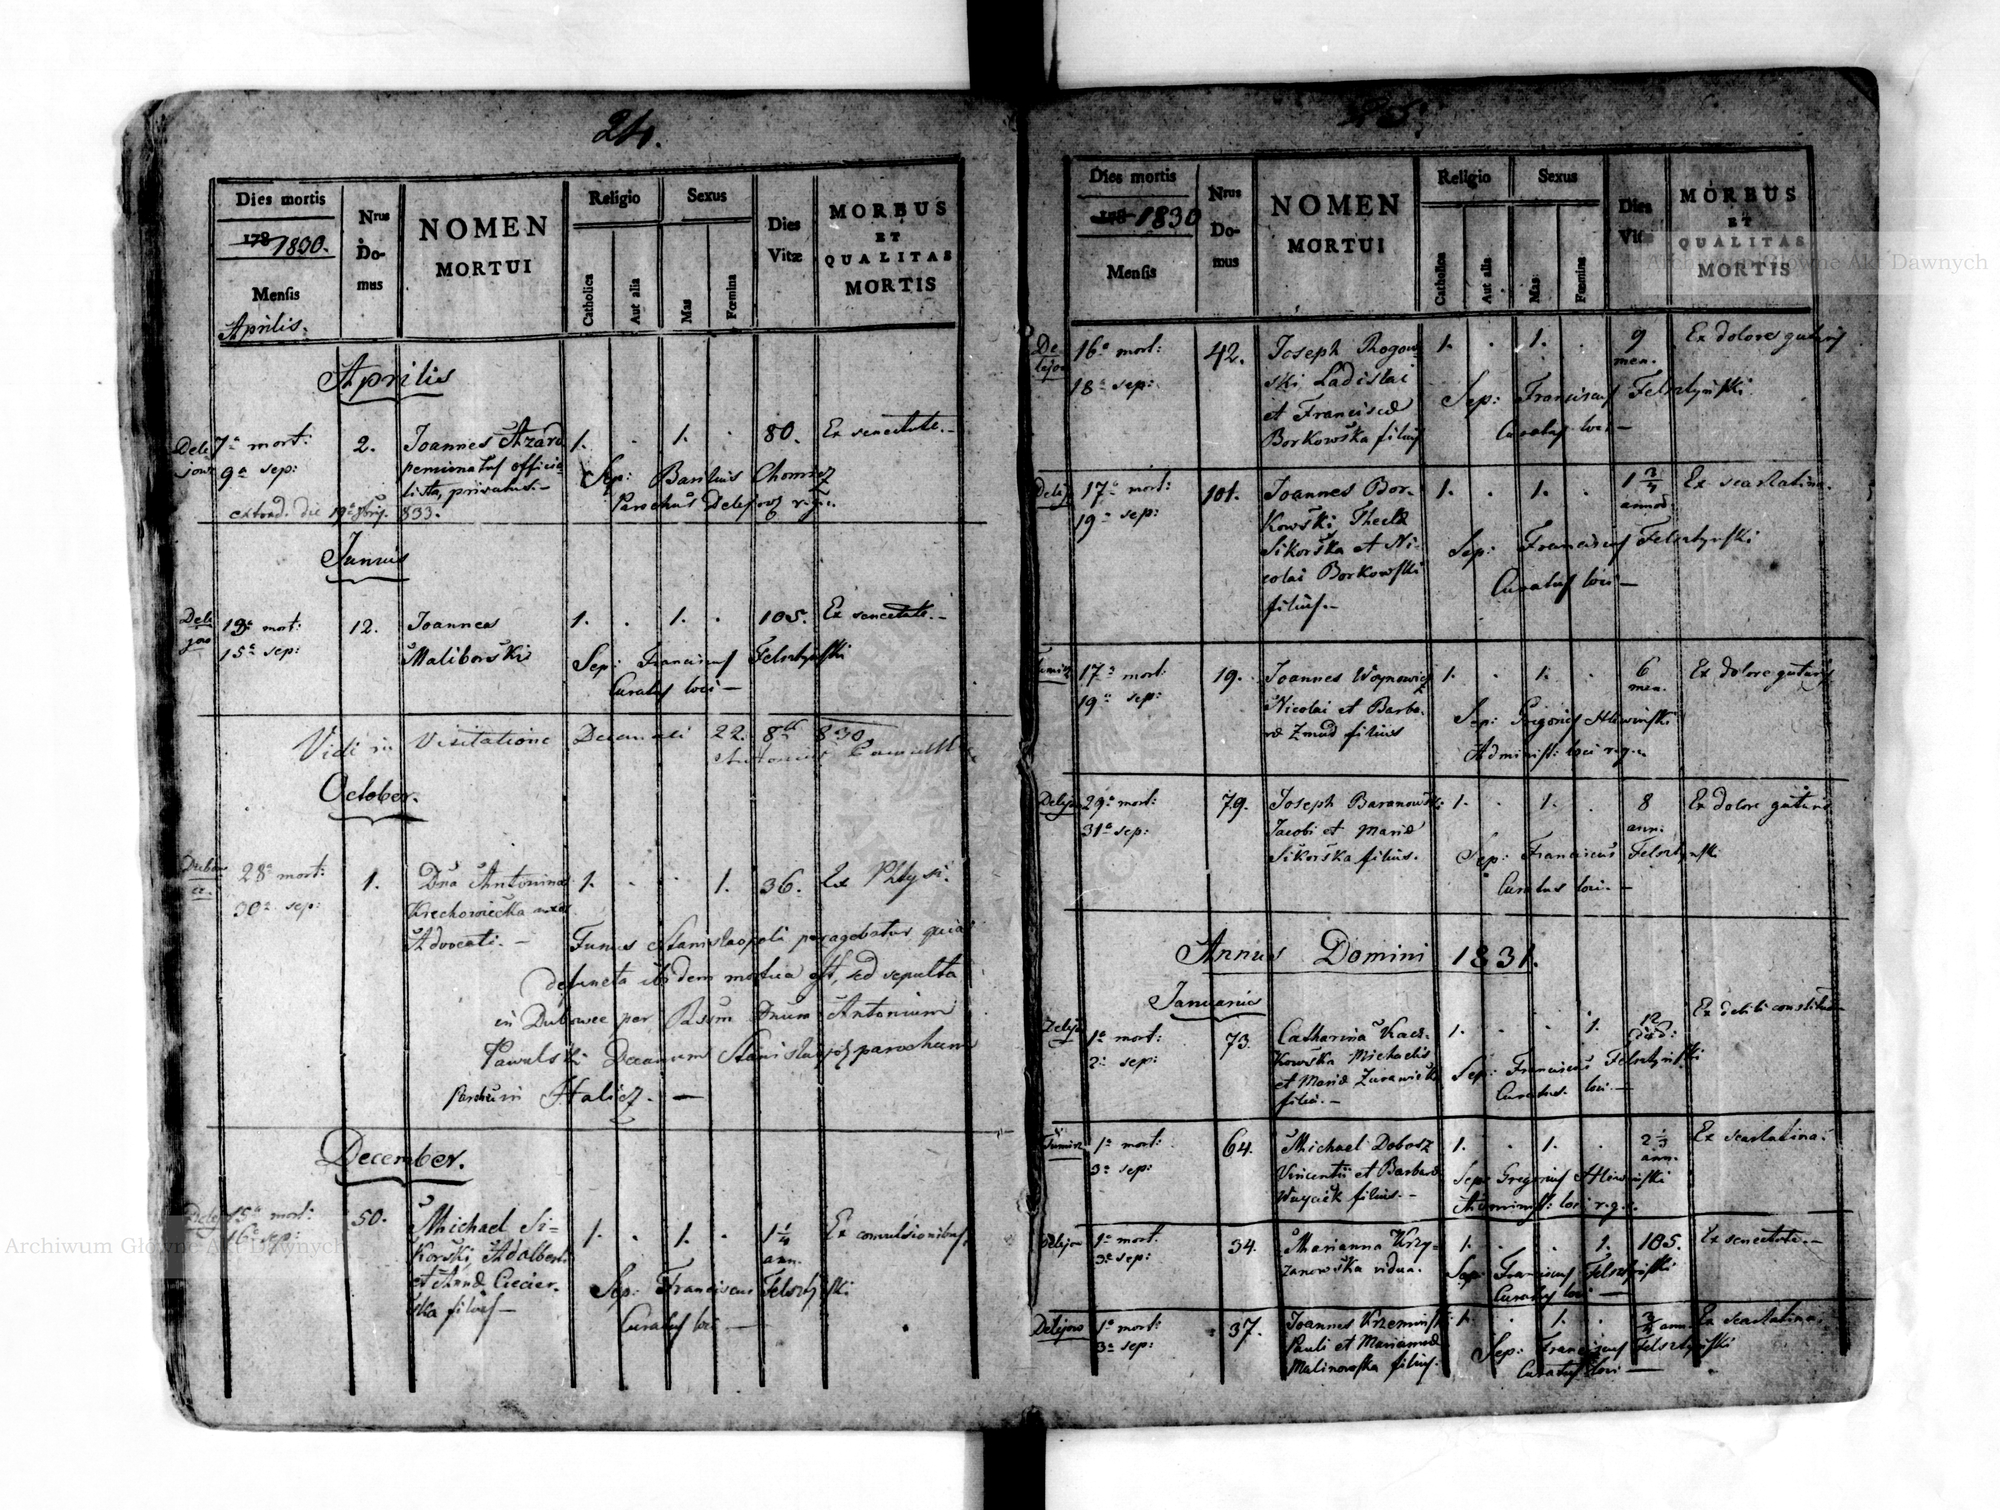 24.
Dies mortis
178 1830.
Mensis
Aprilis.
Nrus
Do-
mus
NOMEN
MORTUI
Religio
Catholica
Aut alia
Sexus
Mas
Fœmina
Dies
Vitæ
MORBUS
ET
QUALITAS
MORTIS
Aprilis
Deli
jow
7ª mort:
9ª sep:
2.
Joannes
pensionatus officia
lista, privatus.—
1. . 1. . 80. Ex senectute.—
Sep: Basilius Chomicz
Parochus Delejow r. g.
extrad. die 833.
Junius
Deli
jow
13ª mort:
15ª sep:
12.
Joannes
Maliborski
1. . 1. . 105. Ex senectute.—
Sep: Franciscus Felsztyński
Curatus loci—
Vidi in Visitatione Decanali 22. 8bris 830
Antonius
October.
Dubow
ce.
28ª mort:
30ª sep:
1.
Dña Antonina
Krechowiecka uxor
Advocati.—
1. . . 1. 36. Ex Phtysi.
Funus Stanislaopoli peragebatur quia
defuncta ibidem mortua est, sed sepulta
in Dubowce per Rssm Dnum Antonium
Pawulski Decanum parochum
in Halicz.—
December.
Delej
15ª mort:
16ª sep:
50.
Michael Si-
korski, Adalberti
et Annæ Ciecier-
ska filius—
1. . 1. . 1 1/4
ann.
Ex convulsionibus.
Sep: Franciscus Felsztyński
Curatus loci—
25.
Dies mortis
178 1830
Mensis
Nrus
Do-
mus
NOMEN
MORTUI
Religio
Catholica
Aut alia
Sexus
Mas
Fœmina
Dies
Vitæ
MORBUS
ET
QUALITAS
MORTIS
De
lejow
16ª mort:
18ª sep:
42.
Joseph Rogow-
ski Ladislai
et Franciscæ
Borkowska filius
1. . 1. . 9
men.
Ex dolore guturis
Sep: Franciscus Felsztyński
Curatus loci—
Delej
17ª mort:
19ª sep:
101.
Joannes Bor-
kowski, Theclæ
Sikorska et Ni-
colai Borkowski
filius.—
1. . 1. . 1 3/4
annor.
Ex scarlatina.
Sep: Franciscus Felsztyński
Curatus loci—
Tumirz
17ª mort:
19ª sep:
19.
Joannes Woynowicz
Nicolai et Barba-
ræ Zmud filius
1. . 1. . 6
men.
Ex dolore guturis
Sep: Grigorius Hlewiński
Administ: loci r. g.
Delejow
29ª mort:
31ª sep:
79.
Joseph Baranowski
Jacobi et Mariæ
Sikorska filius.
1. . 1. . 8
ann.
Ex dolore guturis
Sep: Franciscus Felsztyński
Curatus loci.—
Annus Domini 1831.
Januarius
Delejow
1ª mort:
2ª sep:
73.
Catharina Kacz-
kowska Michaelis
et Mariæ Zurawicka
filia.—
1. . . 1. 12
Ex debili constitu
Sep: Franciscus Felsztyński
Curatus loci—
Tumirz
1ª mort:
3ª sep:
64.
Michael Dobosz
Vincentii et Barbaræ
Woycik filius.—
1. . 1. . 2 1/3
ann.
Ex scarlatina.
Sep: Gregorius Hlewiński
Administ: loci r. g.
Delejow
1ª mort:
3ª sep:
34.
Marianna Krzy-
zanowska vidua.
1. . . 1. 105. Ex senectute.—
Sep: Franciscus Felsztyński
Curatus loci—
Delejow
1ª mort:
3ª sep:
37.
Joannes Krzemiński
Pauli et Mariannæ
Malinowska filius.
1. . 1. . 3/4 ann. Ex scarlatina.
Sep: Franciscus Felsztyński
Curatus loci—
Archiwum Główne Akt Dawnych
Archiwum Główne Akt Dawnych